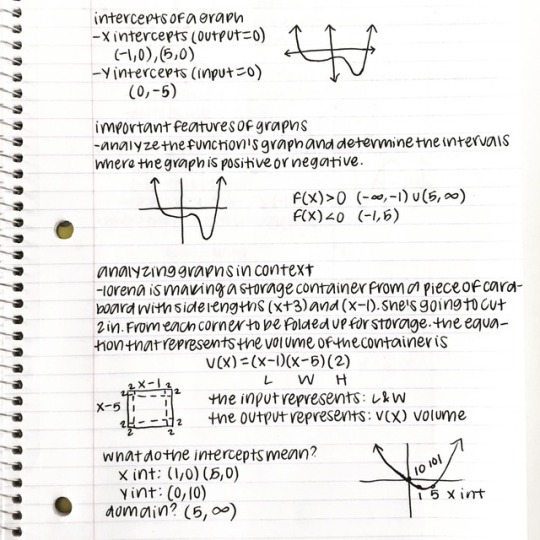 intercepts of a graph
-x intercepts (output=0)
(-1,0),(5,0)
-y intercepts (input=0)
(0,-5)
important features of graphs
-analyze the function's graph and determine the intervals
where the graph is positive or negative.
f(x)>0 (-∞,-1)∪(5,∞)
f(x)<0 (-1,5)
analyzing graphs in context
-lorena is making a storage container from a piece of card-
board with side lengths (x+3) and (x-1). she's going to cut
2in. from each corner to be folded up for storage. the equa-
tion that represents the volume of the container is
v(x)=(x-1)(x-5)(2)
L W H
2 x-1 2
2 2
x-5
2 2
2 2
the input represents: L&W
the output represents: v(x) volume
what do the intercepts mean?
x int: (1,0) (5,0)
y int: (0,10)
domain? (5,∞)
(0,10)
1 5 x int